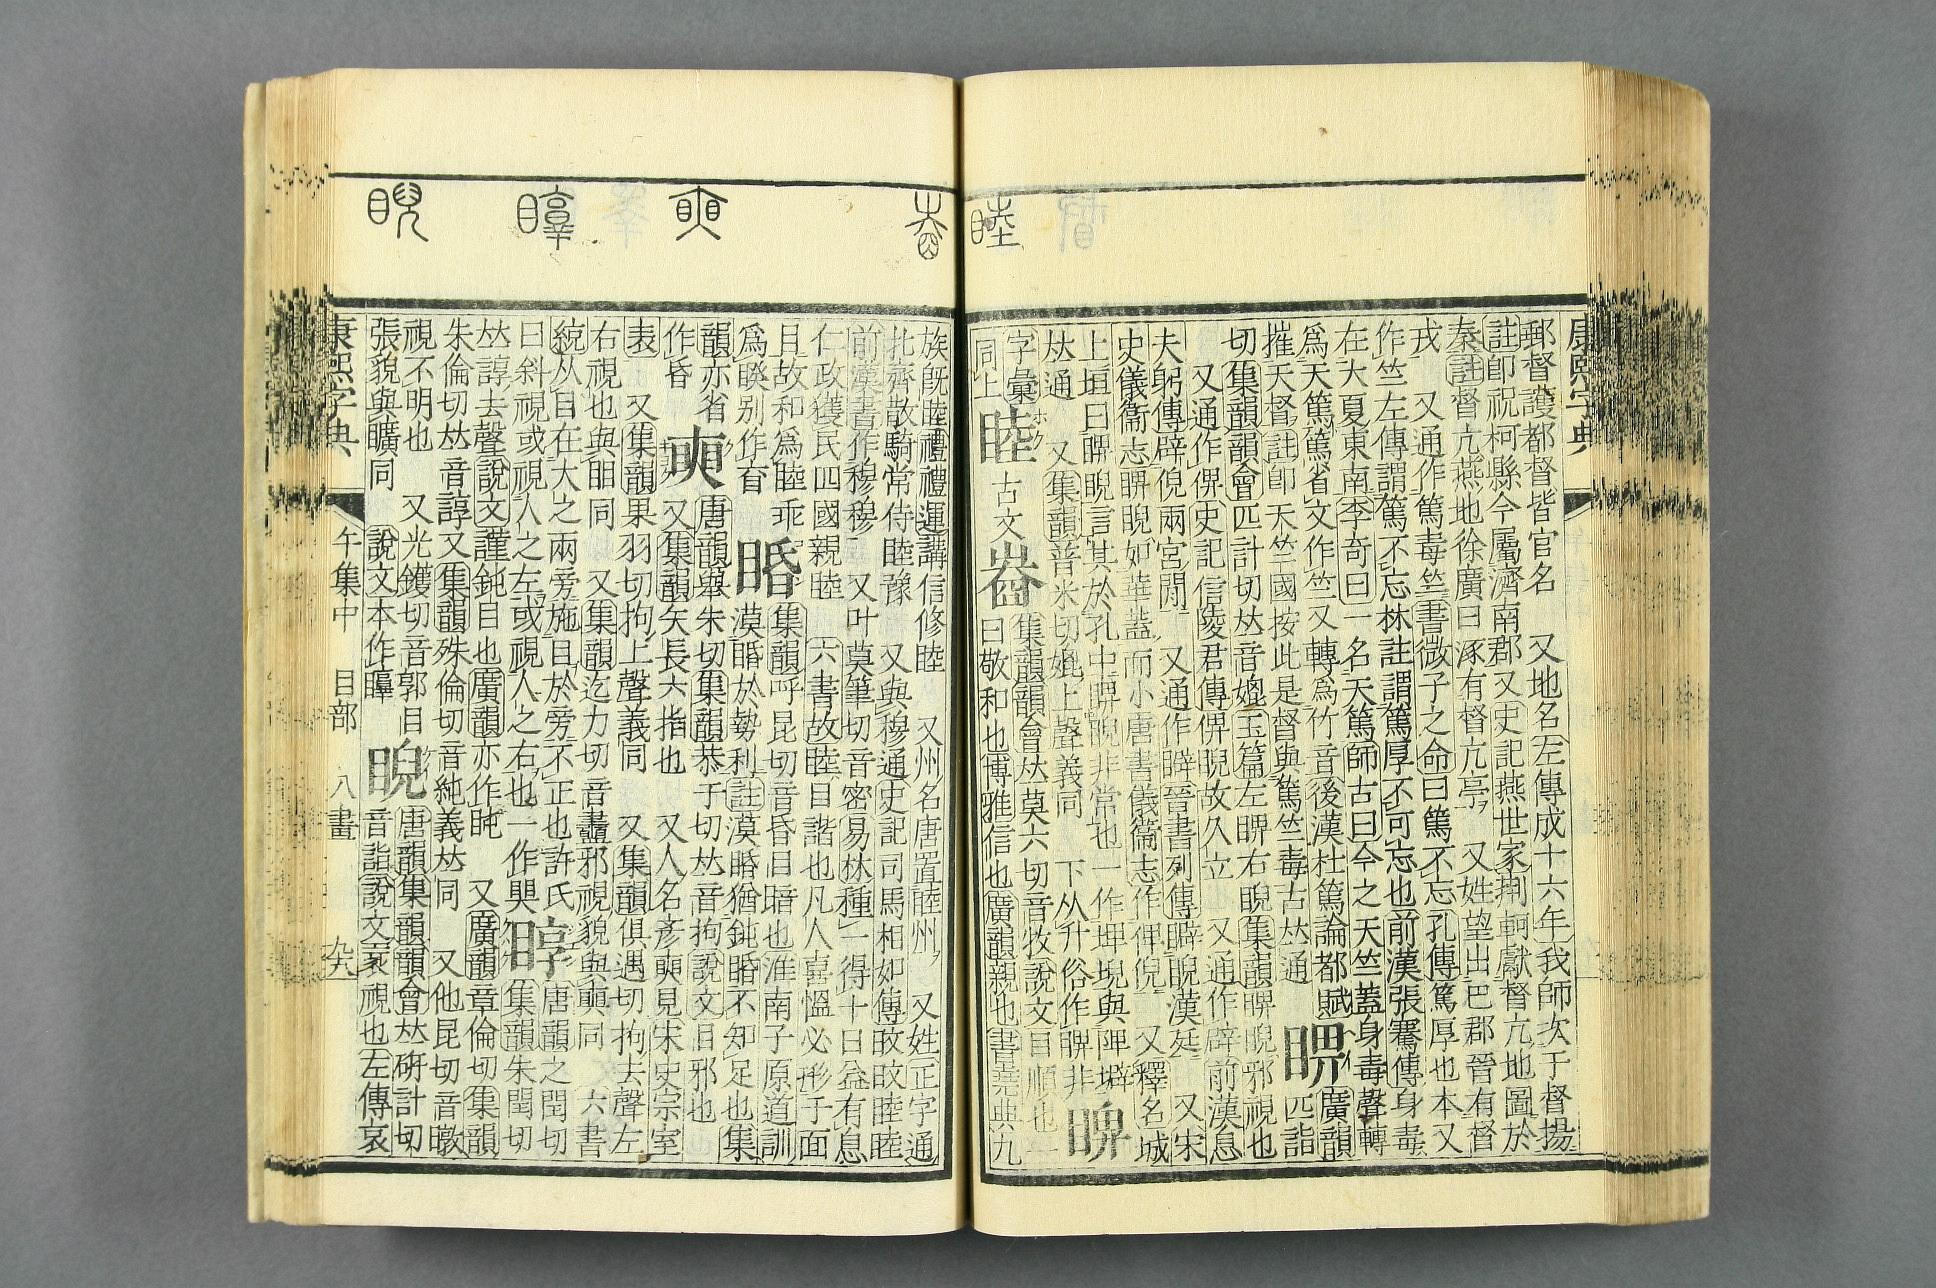 康熙字典
郵督護都督皆官名　又地名左傳成十六年我師次于督揚
註卽祝柯縣今屬濟南郡又史記燕世家荆軻獻督亢地圖於
秦註督亢燕地徐廣曰涿有督亢亭　又姓望出巴郡晉有督
戎　又通作篤毒竺書微子之命曰篤不忘孔傳篤厚也本又
作竺左傳謂篤不忘林註謂篤厚不可忘也前漢張騫傳身毒
在大夏東南李奇曰一名天篤師古曰今之天竺蓋身毒聲轉
爲天篤篤省文作竺又轉爲竹音後漢杜篤論都賦
摧天督註卽天竺國按此是督與篤竺毒古𠀤通　睤　廣韻匹詣
切集韻韻會匹計切𠀤音媲玉篇左睤右睨集韻睤睨邪視也
又通作俾史記信陵君傳俾睨故久立　又通作辟前漢息
夫躬傳辟倪兩宮閒　又通作睥晉書列傳睥睨漢廷　又宋
史儀衞志睥睨如華蓋而小唐書儀衞志作俾倪　又釋名城
上垣曰睥睨言其於孔中睥睨非常也一作埤堄與陴堞
𠀤通　又集韻普米切媲上聲義同　下从升俗作睤非　睥
字彙
同上　睦　古文　𥇎　集韻韻會𠀤莫六切音牧說文目順也一
曰敬和也博雅信也廣韻親也書堯典九
族旣睦禮禮運講信修睦　又州名唐置睦州　又姓正字通
北齊散騎常侍睦豫　又與穆通史記司馬相如傳旼旼睦睦
前漢書作穆穆　又叶莫筆切音密易林種一得十日益有息
仁政獲民四國親睦　六書故睦目諧也凡人喜慍必形于面
且故和爲睦乖爲睽别作䀄　睧　集韻呼昆切音昏目暗也淮南子原道訓
漠睧於勢利註漠睧猶鈍睧不知足也集
韻亦省作昏　䀠　唐韻舉朱切集韻恭于切𠀤音拘說文目邪也
又集韻矢長六指也　又人名彥䀠見宋史宗室
表　又集韻果羽切拘上聲義同　又集韻俱遇切拘去聲左
右視也與䀠同　又集韻訖力切音䀌邪視貌與𥈭同　六書
統从目在大之兩旁施目於旁不正也許氏
曰斜視或視人之左或視人之右也一作㒭　啍　唐韻之閏切
集韻朱閏切
𠀤諄去聲說文謹鈍目也廣韻亦作盹　又廣韻章倫切集韻
朱倫切𠀤音諄又集韻殊倫切音純義𠀤同　又他昆切音暾
視不明也　又光鑊切音郭目
張貌與矌同　說文本作𥊽　睨　唐韻集韻韻會𠀤硏計切
音詣說文衺視也左傳哀
康熙字典　午集中　目部　八畫　九六